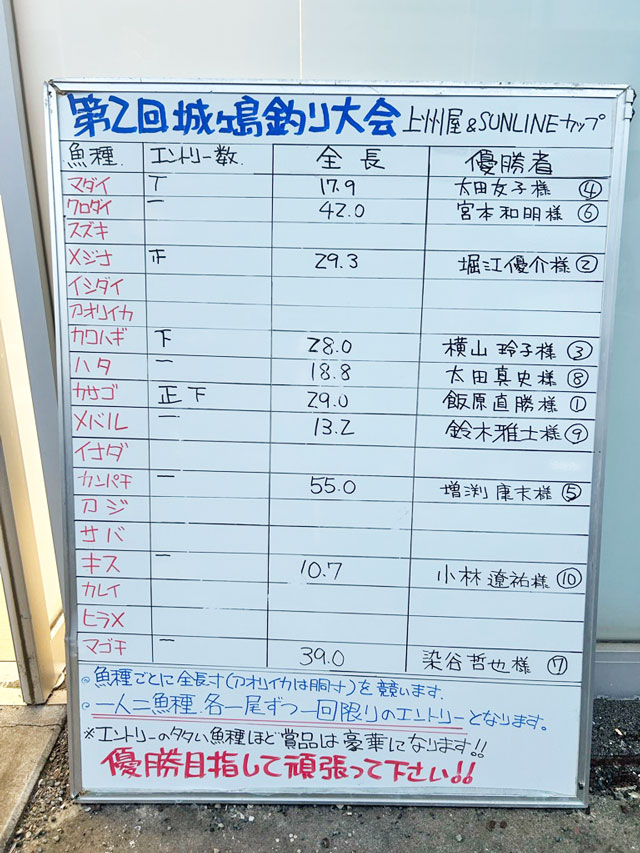 第2回城ヶ島釣り大会 上州屋&SUNLINEカップ
魚種. エントリー数. 全長 優勝者
マダイ T 17.9 太田女子様 ④
クロダイ 一 42.0 宮本和明様 ⑥
スズキ
メジナ 正 29.3 堀江優介様 ②
イシダイ
アオリイカ
カワハギ 下 28.0 横山玲子様 ③
ハタ 一 18.8 太田真史様 ⑧
カサゴ 正下 29.0 飯原直勝様 ①
メバル 一 13.2 鈴木雅士様 ⑨
イナダ
カンパチ 一 55.0 増渕康末様 ⑤
アジ
サバ
キス 一 10.7 小林遼祐様 ⑩
カレイ
ヒラメ
マゴチ 一 39.0 染谷哲也様 ⑦
◎魚種ごとに全長寸(アオリイカは胴寸)を競います.
◎一人二魚種、各一尾ずつ一回限りのエントリーとなります。
※エントリーのタタい魚種ほど賞品は豪華になります!!
優勝目指して頑張って下さい!!